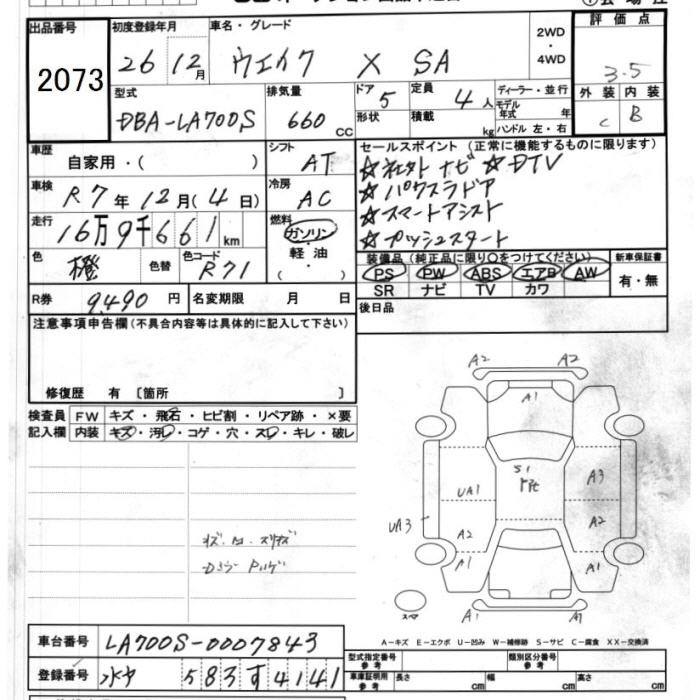 出品番号 初度登録年月 車名・グレード 2WD ・ 4WD 評価点
2073 26 12月 ウェイク X SA 3.5
型式 排気量 ドア 5 定員 4人 ディーラー・並行 外装 内装
DBA-LA700S 660 CC 形状 積載 kg モデル年式 年 ハンドル 左・右 C B
車歴 自家用・( ) シフト AT セールスポイント (正常に機能するものに限ります)
☆社外ナビ ☆DTV
車検 R7年12月(4日) 冷房 AC ☆パワスラドア
☆スマートアシスト
走行 16万9千661km 燃料 ガソリン ・ 軽油 ・ ( ) ☆プッシュスタート
色 橙 色替 色コード R71 装備品 (純正品に限り○をつけてください) 新車保証書
PS PW ABS エアB AW 有・無
SR ナビ TV カワ
R券 9,490円 名変期限 月 日 後日品
注意事項申告欄 (不具合内容等は具体的に記入して下さい)
修復歴 有 [箇所 ]
検査員 FW キズ・飛石・ヒビ割・リペア跡・×要
記入欄 内装 キズ・汚レ・コゲ・穴・スレ・キレ・破レ
A2 A2
A1
S1
UA1 A3
UA3 A2 A2
A1 A1
スペア A1 A1
A-キズ E-エクボ U-凹み W-補修跡 S-サビ C-腐食 XX-交換済
車台番号 LA700S-0007843 型式指定番号 参考 類別区分番号 参考
登録番号 水戸 583 す 4141 車庫証明用 参考 長さ cm 幅 cm 高さ cm